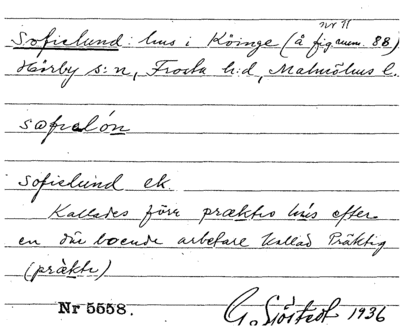 nr 11
Sofielund: hus i Köinge (å fig.num. 88)
Hörby s:n, Frosta h:d, Malmöhus l.
sofielón
Sofielund ek.
Kallades förr præktes hus efter
en där boende arbetare kallad Präktig
(präkte)
Nr 5558.
G. Sjöstedt 1936